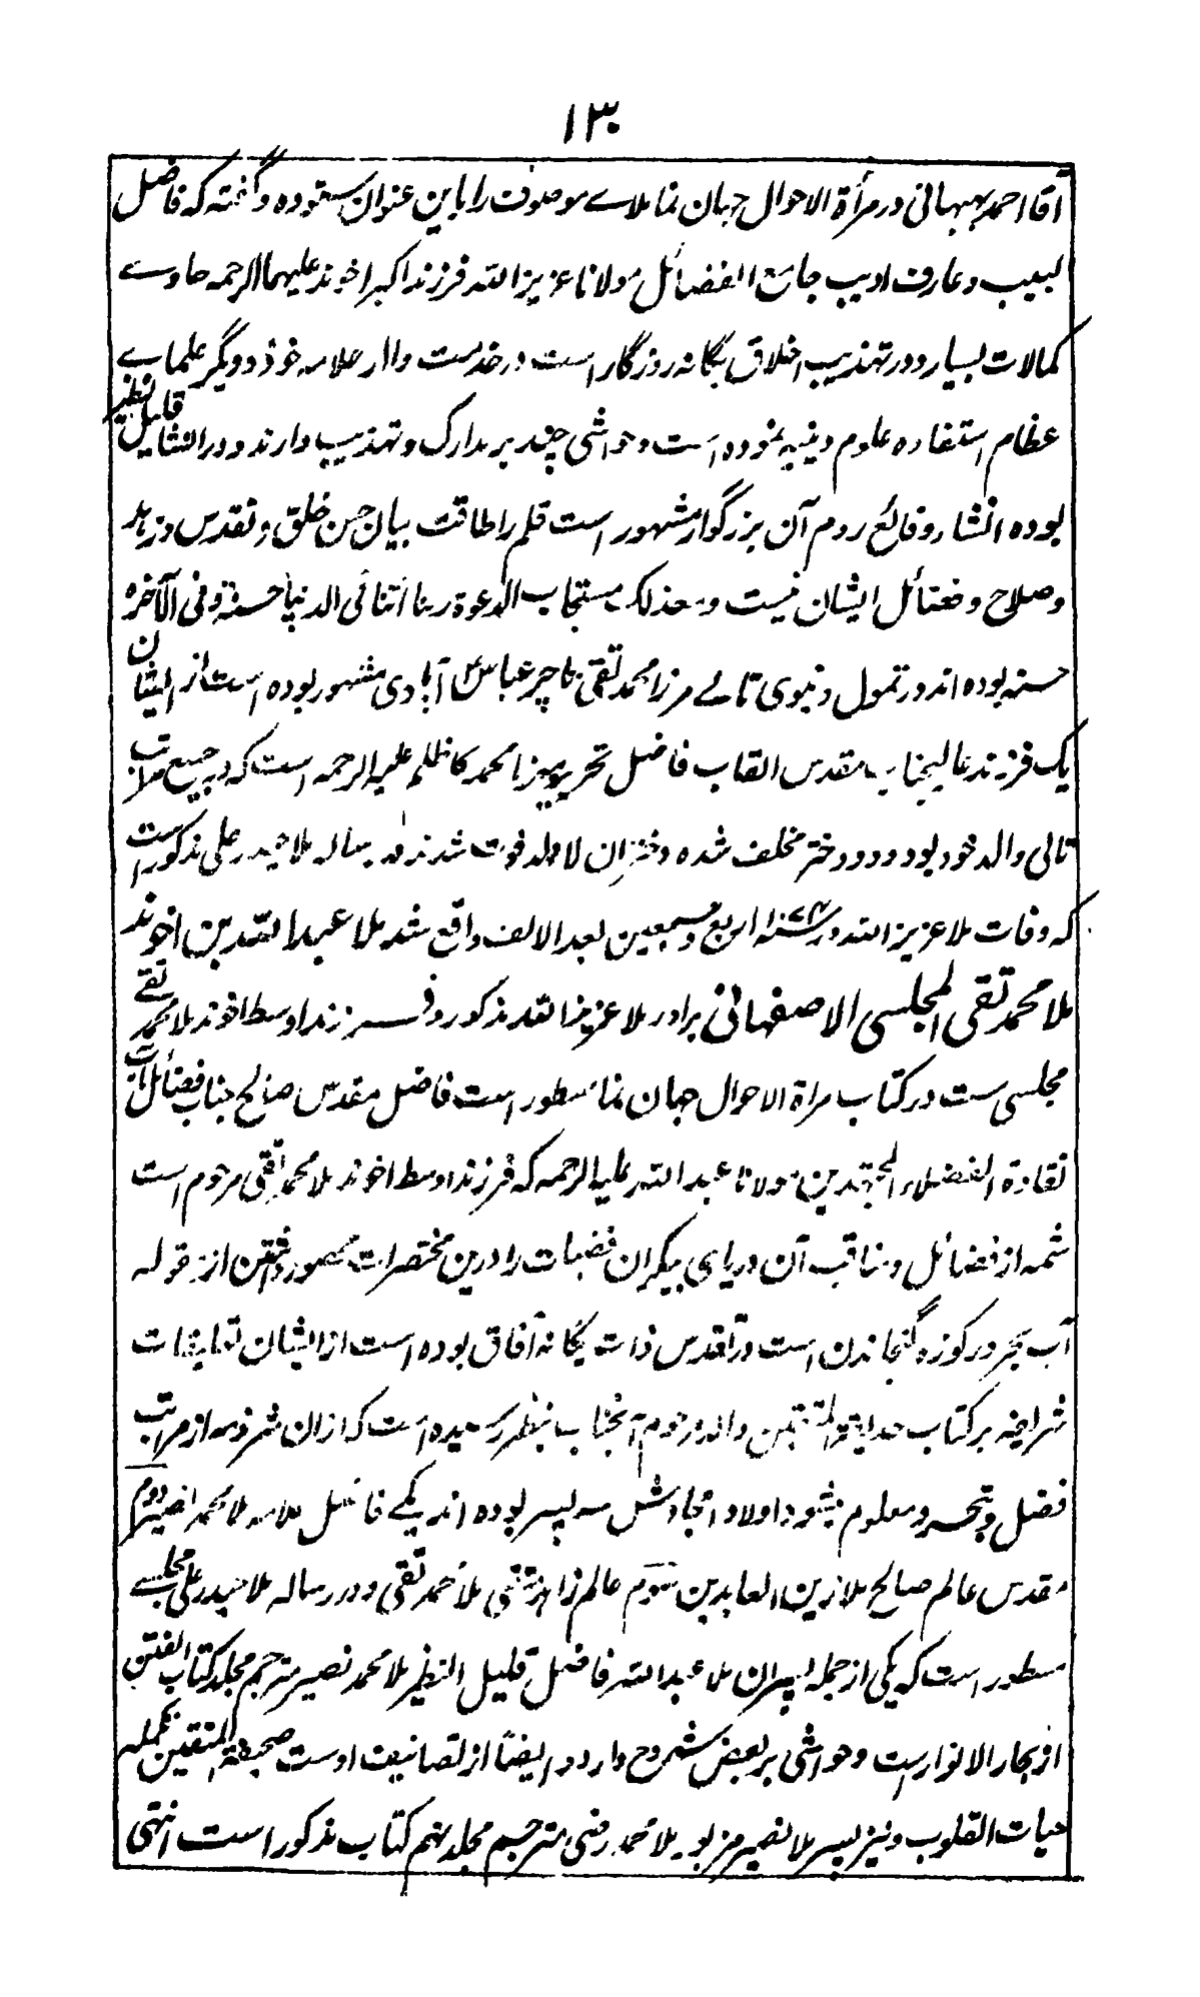 ۱۳۰
آقا احمد بهبهانی در مرأة الاحوال جهان نما ملاے موصوف را باین عنوان ستوده و گفته که فاضل
لبیب و عارف ادیب جامع الفضائل مولانا عزیز الله فرزند اکبر اخوند علیهما الرحمه حاوے
کمالات بسیار و در تهذیب اخلاق یگانه روزگار است در خدمت والد علامه خود و دیگر علماے
عظام استفاده علوم دینیه نموده است و حواشی چند بر مدارک و تهذیب دارند و در انشا قلیل النظیر
بوده انشاء وقائع روم آن بزرگوار مشهور است قلم را طاقت بیان حسن خلق و تقدس و زهد
و صلاح و فضائل ایشان نیست و معذلک مستجاب الدعوة ربنا آتنا فی الدنیا حسنة و فی الآخره
حسنه بوده اند در تمول دنیوی تالے مرزا محمد تقی تاجر عباس آبادی مشهور بوده است از ایشان
یک فرزند عالیجناب مقدس القاب فاضل تحریر میرزا محمد کاظم علیه الرحمه است که در جمیع مراتب
تالی والد خود بود و دو دختر مخلف شده دختران لا ولد فوت شدند در رساله ملا حیدر علی مذکور است
که وفات ملا عزیز الله در سنه ۱۰۷۴ اربع و سبعین بعد الالف واقع شد ملا عبد الله بن اخوند
ملا محمد تقی المجلسی الاصفهانی برادر ملا عزیز الله مذکور و فرزند اوسط اخوند ملا محمد تقے
مجلسی ست در کتاب مرأة الاحوال جهان نما مسطور است فاضل مقدس صالح جناب فضائل مآب
نقادة الفضلاء المجتهدین مولانا عبد الله علیه الرحمه که فرزند اوسط اخوند ملا محمد تقی مرحوم است
شمه از فضائل و مناقب آن دریای بیکران فضیلت را درین مختصرات محصور داشتن از مقوله
آب بحر در کوزه گنجاندن است در تقدس ذات یگانه آفاق بوده است از ایشان تعلیقات
شریفه بر کتاب حدیقة المتقین والد مرحوم آنجناب بنظر رسیده است که ازان شرذمه از مراتب
فضل و تبحر و معلوم میشود اولاد امجادش سه پسر بوده اند یکے فاضل علامه ملا محمد نصیر دوم
مقدس عالم صالح ملا زین العابدین سوم عالم زاهد متقی ملا محمد تقی و در رساله ملا حیدر علی مجلسے
مسطور است که یکی از جمله پسران ملا عبد الله فاضل قلیل النظیر ملا محمد نصیر مترجم مجلد کتاب الفتن
از بحار الانوار است و حواشی بر بعض شروح دارد و ایضاً از تصانیف اوست صحیفة المتقین تکمله
حیات القلوب و نیز پسر ملا نصیر مزبور ملا محمد رضی مترجم مجلد نهم کتاب مذکور است انتهی